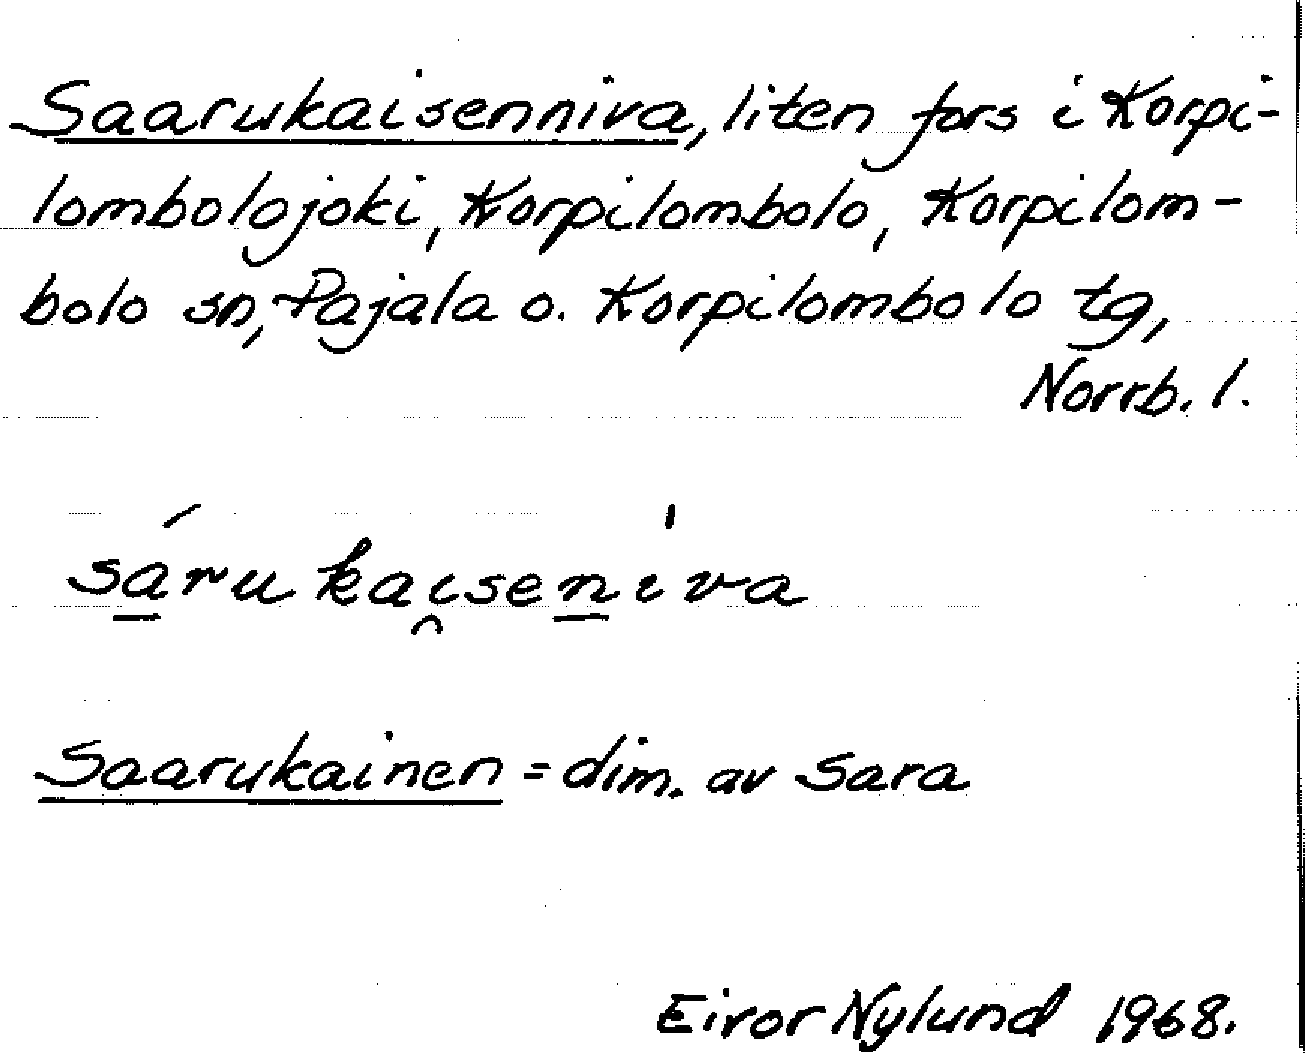 Saarukaisenniva, liten fors i Korpi-
lombolojoki, Korpilombolo, Korpilom-
bolo sn, Pajala o. Korpilombolo tg,
Norrb. l.
sá̱rukai̯seṉìva
Saarukainen = dim. av Sara
Eivor Nylund 1968.